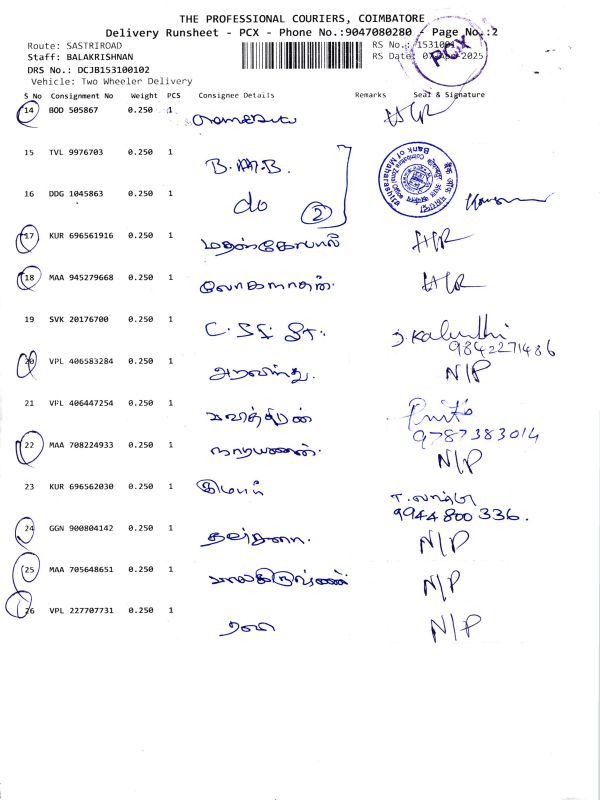 THE PROFESSIONAL COURIERS, COIMBATORE
Delivery Runsheet - PCX - Phone No.:9047080280 - Page No.:2
Route: SASTRIROAD
RS No.:
Staff: BALAKRISHNAN
RS Date:
PCX
DRS No.: DCJB153100102
Vehicle: Two Wheeler Delivery
S No Consignment No Weight PCS Consignee Details Remarks Seal & Signature
14 BOD 505867 0.250 1
15 TVL 9976703 0.250 1 B.M.B.
Bank of Maharashtra
Coimbatore Zonal Office
16 DDG 1045863 0.250 1 do 2
17 KUR 696561916 0.250 1 மதன்கோபால்
18 MAA 945279668 0.250 1 லோகநாதன்.
19 SVK 20176700 0.250 1
9842271486
20 VPL 406583284 0.250 1 அரவிந்து. N/P
21 VPL 406447254 0.250 1
9787383014
22 MAA 708224933 0.250 1 நாராயணன். N/P
23 KUR 696562030 0.250 1
9944800336.
24 GGN 900804142 0.250 1 N/P
25 MAA 705648651 0.250 1 பாலகிருஷ்ணன் N/P
26 VPL 227707731 0.250 1 ரவி N/P